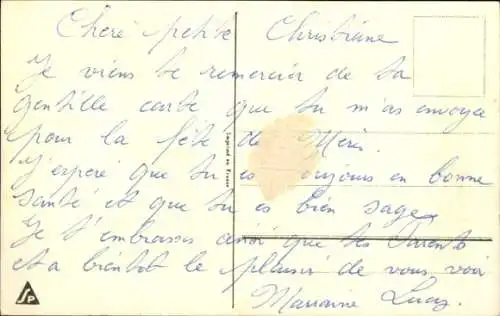 Chere petite Christiane
Je viens te remercier de ta
gentille carte que tu m'as envoyé
pour la fête de Mères.
J'espere que tu es toujours en bonne
santé et que tu es bien sage
Je t'embrasse ainsi que tes Parents
et a bientot le plaisir de vous voir
Marraine
Imprimé en France
SP